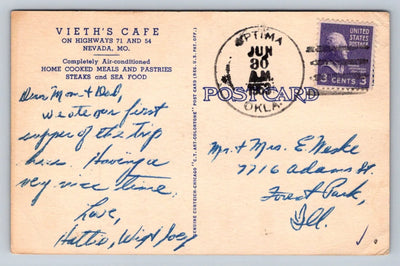 VIETH'S CAFE
ON HIGHWAYS 71 AND 54
NEVADA, MO.
Completely Air-conditioned
HOME COOKED MEALS AND PASTRIES
STEAKS and SEA FOOD
Dear Mom & Dad,
We ate our first
supper of the trip
here. Having a
very nice time.
Love,
Hattie,
GENUINE CURTEICH-CHICAGO "C.T. ART-COLORTONE" POST CARD (REG. U.S. PAT. OFF.)
OPTIMA
JUN
30
A.M.
OKLA.
UNITED
STATES
POSTAGE
3 CENTS 3
POST CARD
Mr. & Mrs. E. Meske
7716 Adams St.
Forest Park,
Ill.